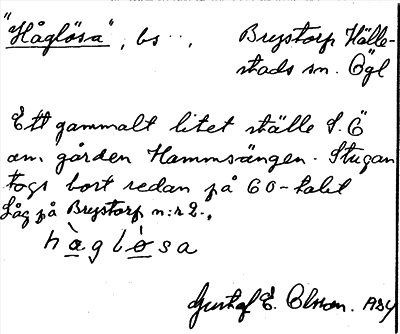 "Håglösa", bs .., Brystorp Hälle-
stads sn. Ögl
Ett gammalt litet ställe S. Ö
om gården Hammsängen. Stugan
togs bort redan på 60-talet
Låg på Brystorp n:r 2.
hàglòsa
Gustaf E. Olsson.